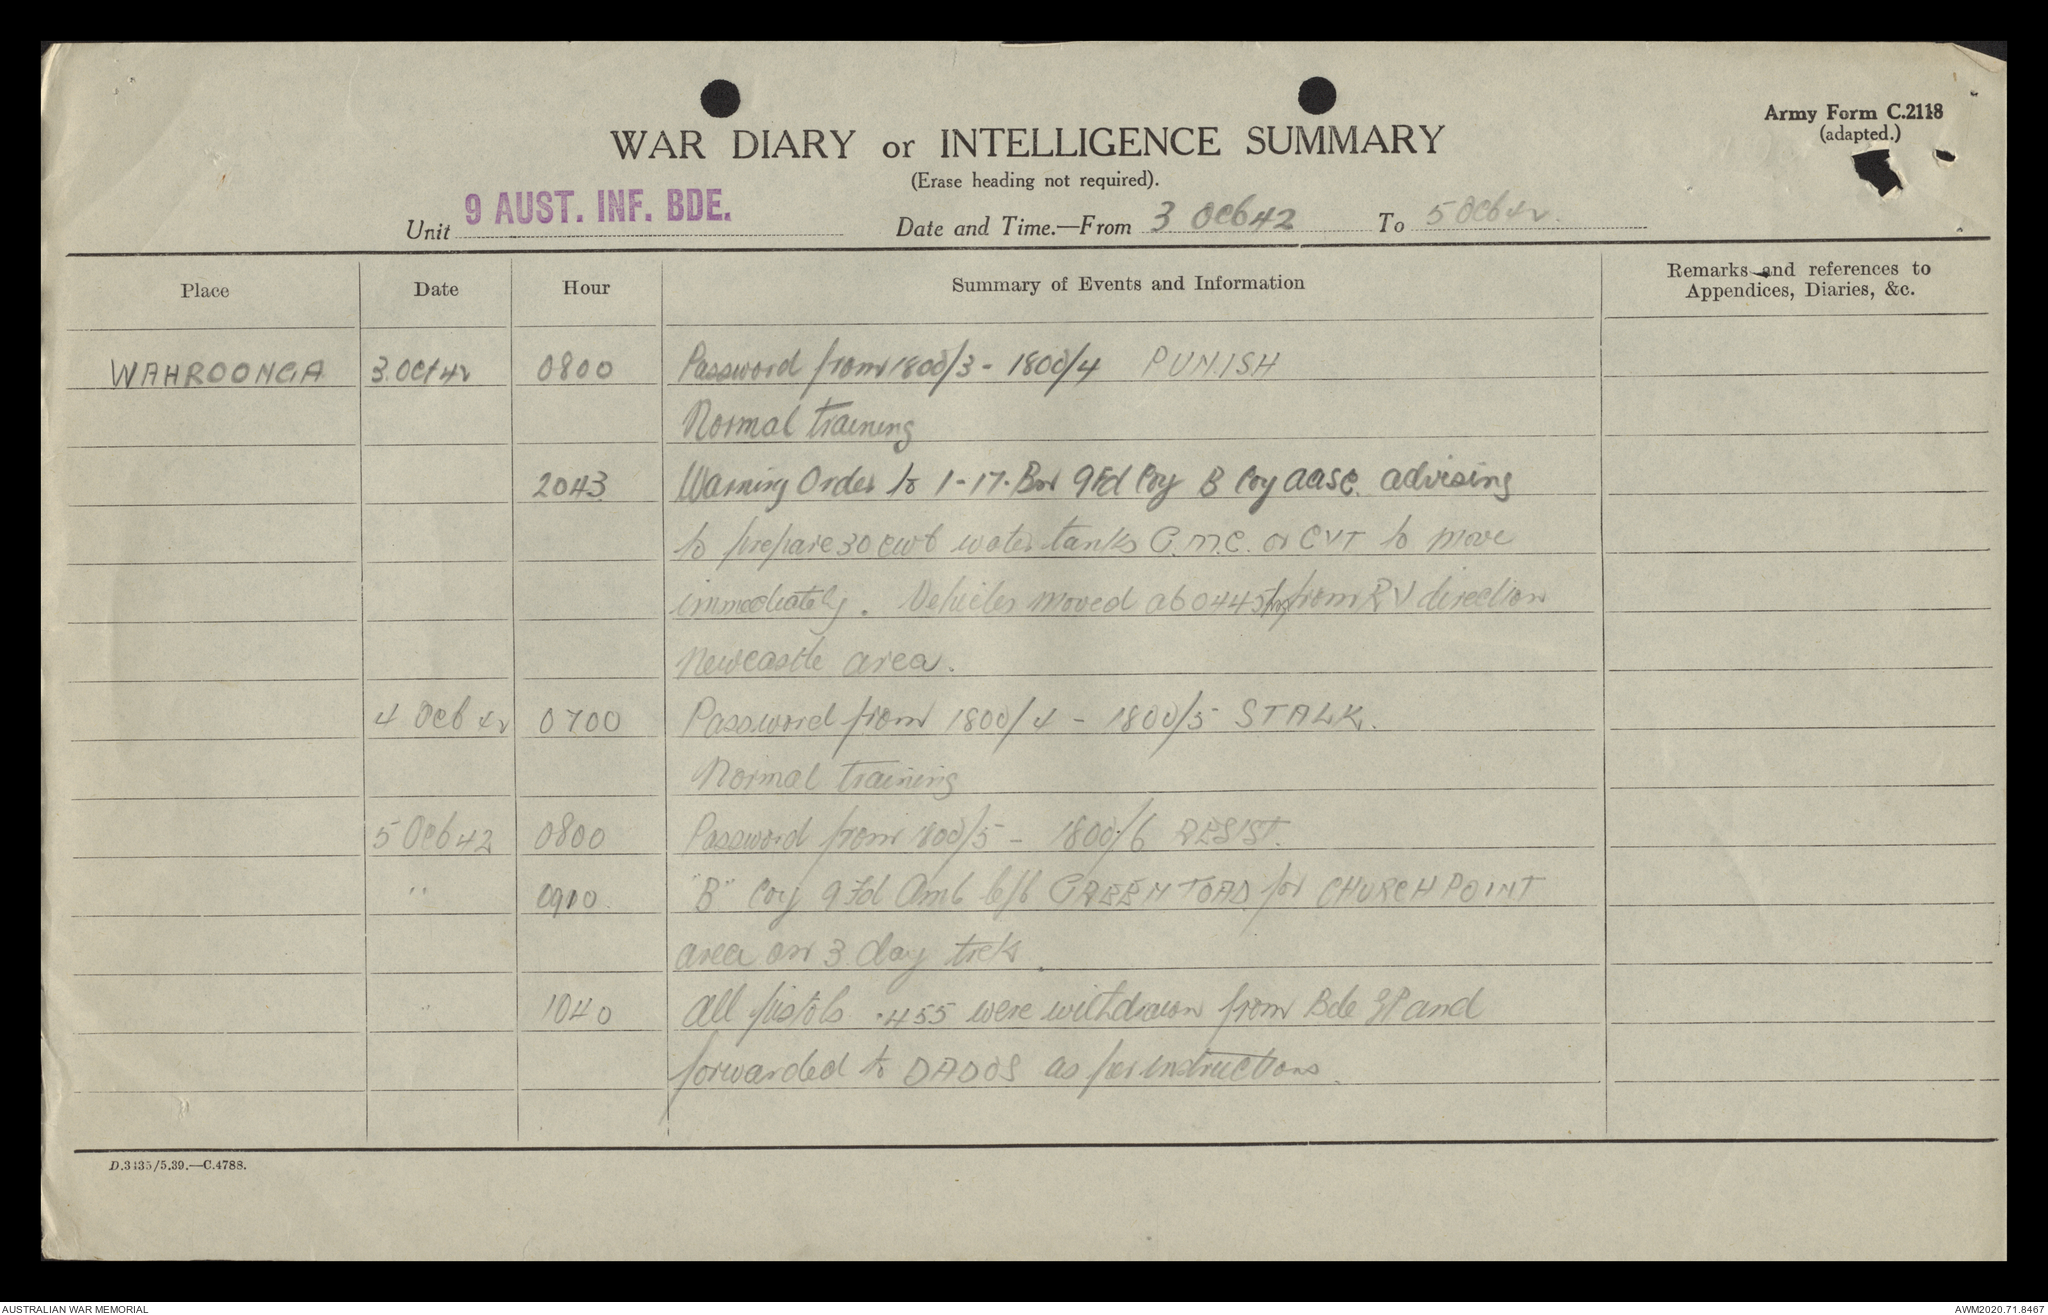 Army Form C.2118
(adapted.)
WAR DIARY or INTELLIGENCE SUMMARY
(Erase heading not required).
Unit 9 AUST. INF. BDE. Date and Time.—From 3 Oct 42 To 5 Oct 42.
Place Date Hour Summary of Events and Information Remarks and references to Appendices, Diaries, &c.
WAHROONGA 3 Oct 42 0800 Password from 1800/3 - 1800/4 PUNISH
Normal training
2043 Warning Order to 1-17 Bn 9 Fd Coy B Coy AASC advising
to prepare 30 cwt water tanks G.M.C. or CVT to move
immediately. Vehicles moved at 0445 hrs from RV direction
Newcastle area.
4 Oct 42 0700 Password from 1800/4 - 1800/5 STALK.
Normal training
5 Oct 42 0800 Password from 1800/5 - 1800/6 RESIST.
" 0910 "B" Coy 9 Fd Amb left GREEN TOAD for CHURCH POINT
area on 3 day trek.
" 1040 All pistols .455 were withdrawn from Bde GP and
forwarded to DADOS as per instructions.
D.3435/5.39.—C.4788.
AUSTRALIAN WAR MEMORIAL
AWM2020.71.8467